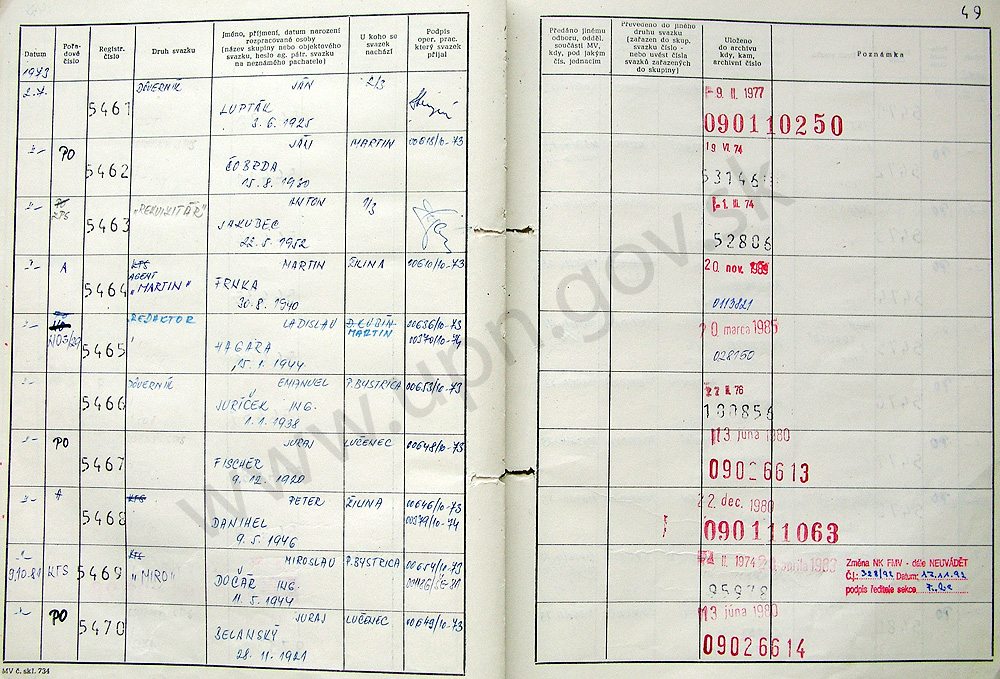 49
Datum
Pořadové číslo
Registr. číslo
Druh svazku
Jméno, příjmení, datum narození rozpracované osoby (název skupiny nebo objektového svazku, heslo ag. pátr. svazku na neznámého pachatele)
U koho se svazek nachází
Podpis oper. prac. který svazek přijal
Předáno jinému odboru, odděl. součásti MV, kdy, pod jakým čís. jednacím
Převedeno do jiného druhu svazku (zařazen do skup. svazku číslo - nebo uvést čísla svazků zařazených do skupiny)
Uloženo do archivu kdy, kam, archivní číslo
Poznámka
1973
5461 DÔVERNÍK JÁN 2/3
LUPTÁK
3. 6. 1925
9. II. 1977
090110250
PO 5462 JÁN MARTIN 00618/10-73
15. 8. 1930
19 VI. 74
KTS 5463 „REKVIZITÁR" ANTON 1/3
JAKUBEC
22. 5. 1952
1. III. 74
52806
A 5464 KTS MARTIN ŽILINA 00610/10-73
AGENT
„MARTIN" FRKA
30. 8. 1940
20. nov. 1989
0113821
5465 REDAKTOR LADISLAV D. KUBÍN 00656/10-73
MARTIN 00370/10-74
HAGARA
15. 1. 1944
20 marca 1985
028150
5466 DÔVERNÍK EMANUEL P. BYSTRICA 00653/10-73
JURÍČEK ING.
1. 1. 1938
II. 76
100856
PO 5467 JURAJ LUČENEC 00648/10-73
FISCHER
9. 12. 1920
13 júna 1980
09026613
A 5468 KTS PETER ŽILINA 00646/10-73
00379/10-74
DANIHEL
9. 5. 1946
22. dec. 1980
090111063
9.10.81 KTS 5469 KTS MIROSLAV P. BYSTRICA 00654/10-73
„MIRO" DOČÁR ING.
11. 5. 1944
II. 1974
95978
Změna NK FMV - dále NEUVÁDĚT
Č.j.: 328/92 Datum: 17.11.92
podpis ředitele sekce
PO 5470 JURAJ LUČENEC 00649/10-73
BELANSKÝ
28. 11. 1921
13 júna 1980
09026614
MV č. skl. 734
www.upn.gov.sk